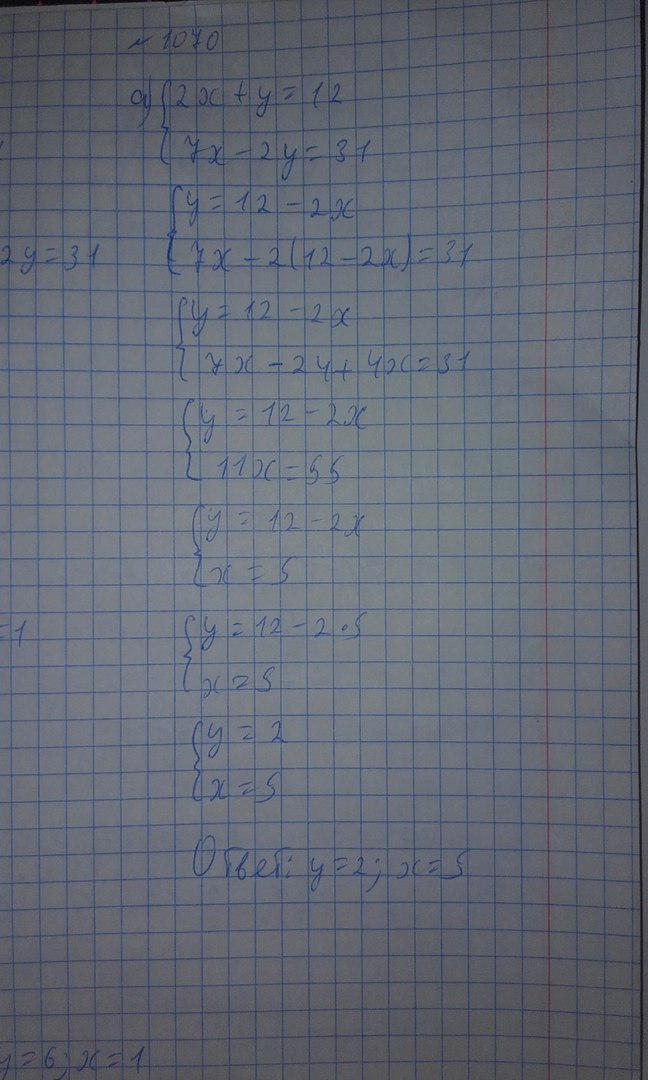 № 1070
а) { 2x + y = 12
7x - 2y = 31
{ y = 12 - 2x
2y = 31
7x - 2(12 - 2x) = 31
{ y = 12 - 2x
7x - 24 + 4x = 31
{ y = 12 - 2x
11x = 55
{ y = 12 - 2x
x = 5
=1
{ y = 12 - 2·5
x = 5
{ y = 2
x = 5
Ответ: y = 2; x = 5
y = 6; x = 1